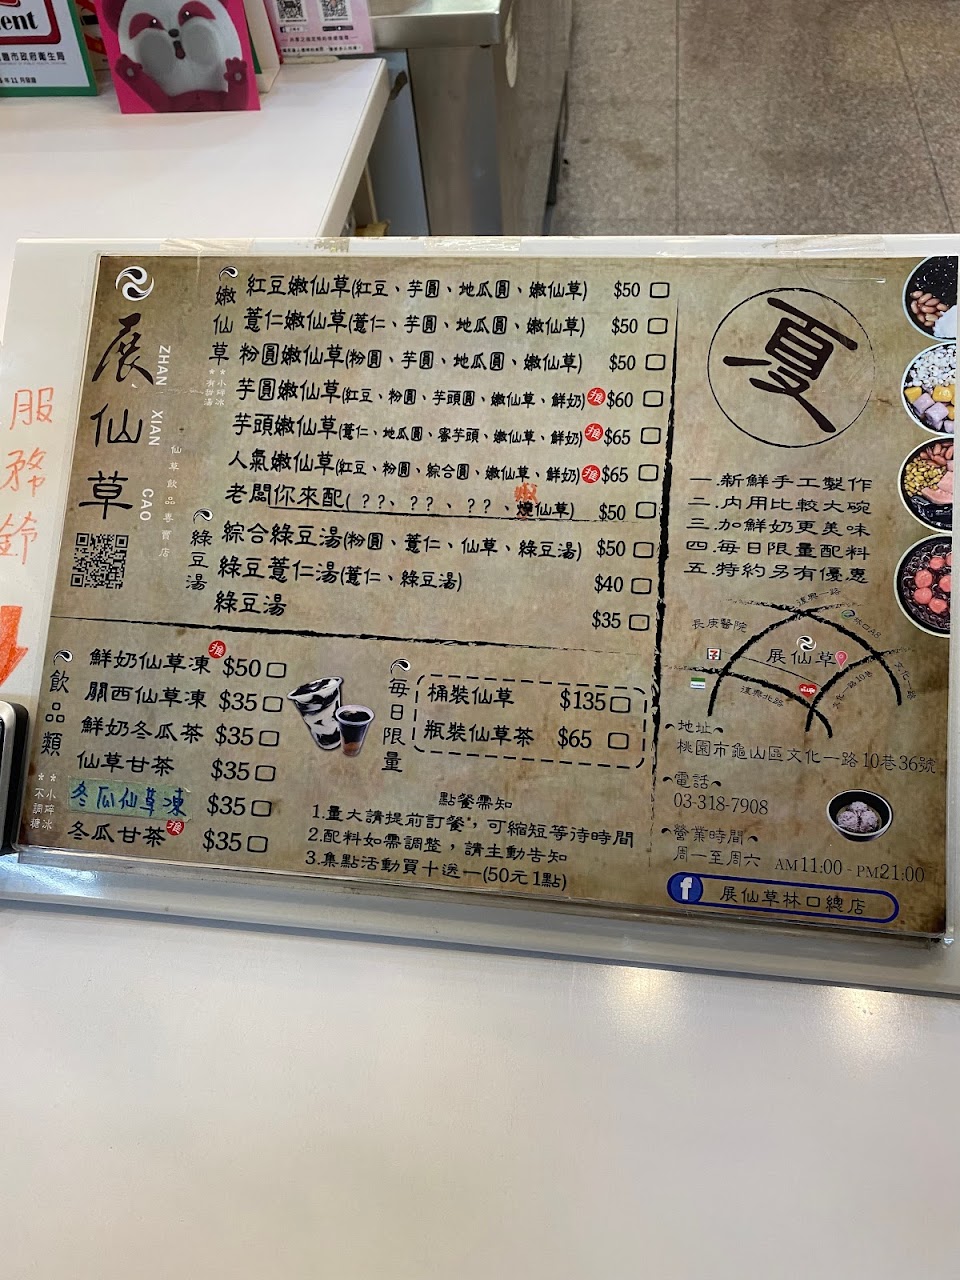 ent
市政府衛生局
服務鈴
展仙草
ZHAN XIAN CAO
仙草飲品專賣店
嫩仙草
**小碎冰
紅豆嫩仙草(紅豆、芋圓、地瓜圓、嫩仙草) $50
薏仁嫩仙草(薏仁、芋圓、地瓜圓、嫩仙草) $50
粉圓嫩仙草(粉圓、芋圓、地瓜圓、嫩仙草) $50
芋圓嫩仙草(紅豆、粉圓、芋頭圓、嫩仙草、鮮奶) 推 $60
芋頭嫩仙草(薏仁、地瓜圓、蜜芋頭、嫩仙草、鮮奶) 推 $65
人氣嫩仙草(紅豆、粉圓、綜合圓、嫩仙草、鮮奶) 推 $65
老闆你來配(??、??、??、燒仙草) $50
嫩
綠豆湯
綜合綠豆湯(粉圓、薏仁、仙草、綠豆湯) $50
綠豆薏仁湯(薏仁、綠豆湯) $40
綠豆湯 $35
飲品類
**小碎冰
不調糖
鮮奶仙草凍 推 $50
關西仙草凍 $35
鮮奶冬瓜茶 $35
仙草甘茶 $35
冬瓜仙草凍 $35
冬瓜甘茶 推 $35
每日限量
桶裝仙草 $135
瓶裝仙草茶 $65
點餐需知
1.量大請提前訂餐*,可縮短等待時間
2.配料如需調整,請主動告知
3.集點活動買十送一(50元1點)
夏
一.新鮮手工製作
二.內用比較大碗
三.加鮮奶更美味
四.每日限量配料
五.特約另有優惠
復興一路
長庚醫院
林口A8
展仙草
復興北路
文化一路
地址
桃園市龜山區文化一路10巷36號
電話
03-318-7908
營業時間
周一至周六 AM11:00 - PM21:00
f 展仙草林口總店